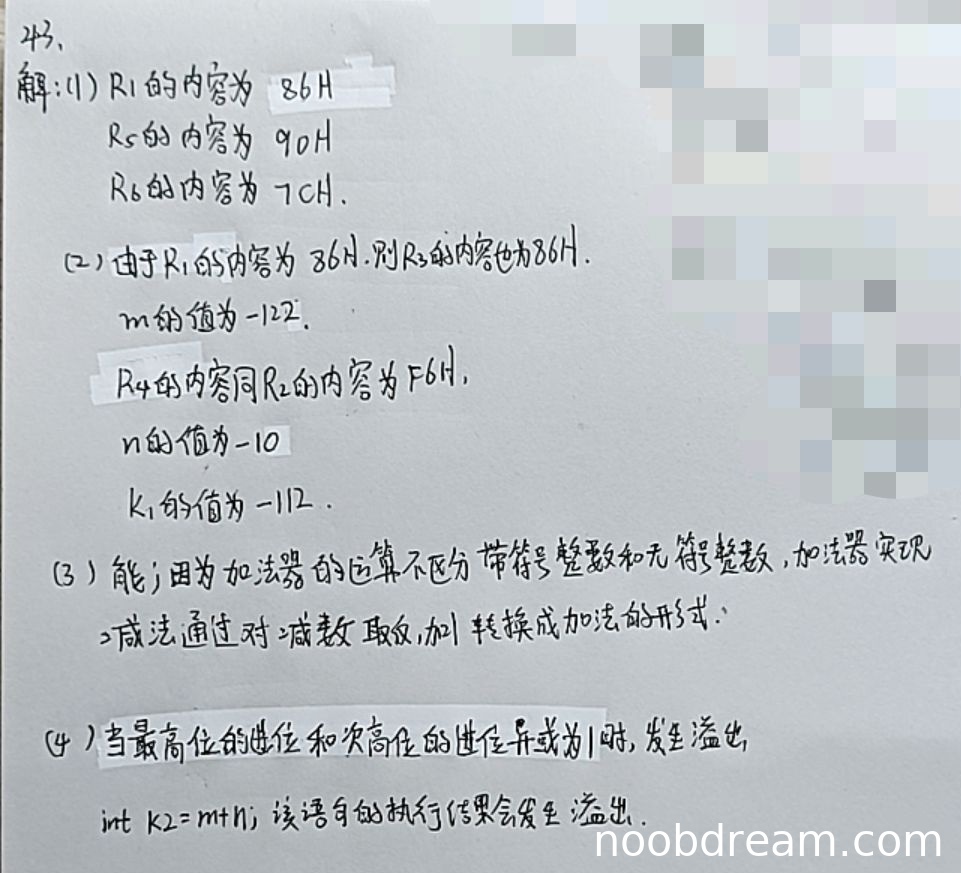 43、
解:(1) R1的内容为 86H
R5的内容为 90H
R6的内容为 7CH.
(2) 由于R1的内容为 86H.则R3的内容也为86H.
m的值为-122.
R4的内容同R2的内容为F6H,
n的值为-10
K1的值为-112.
(3) 能;因为加法器的运算不区分带符号整数和无符号整数,加法器实现
减法通过对减数取反,加1转换成加法的形式.
(4) 当最高位的进位和次高位的进位异或为1时,发生溢出
int K2=m+n; 该语句的执行结果会发生溢出.
noobdream.com